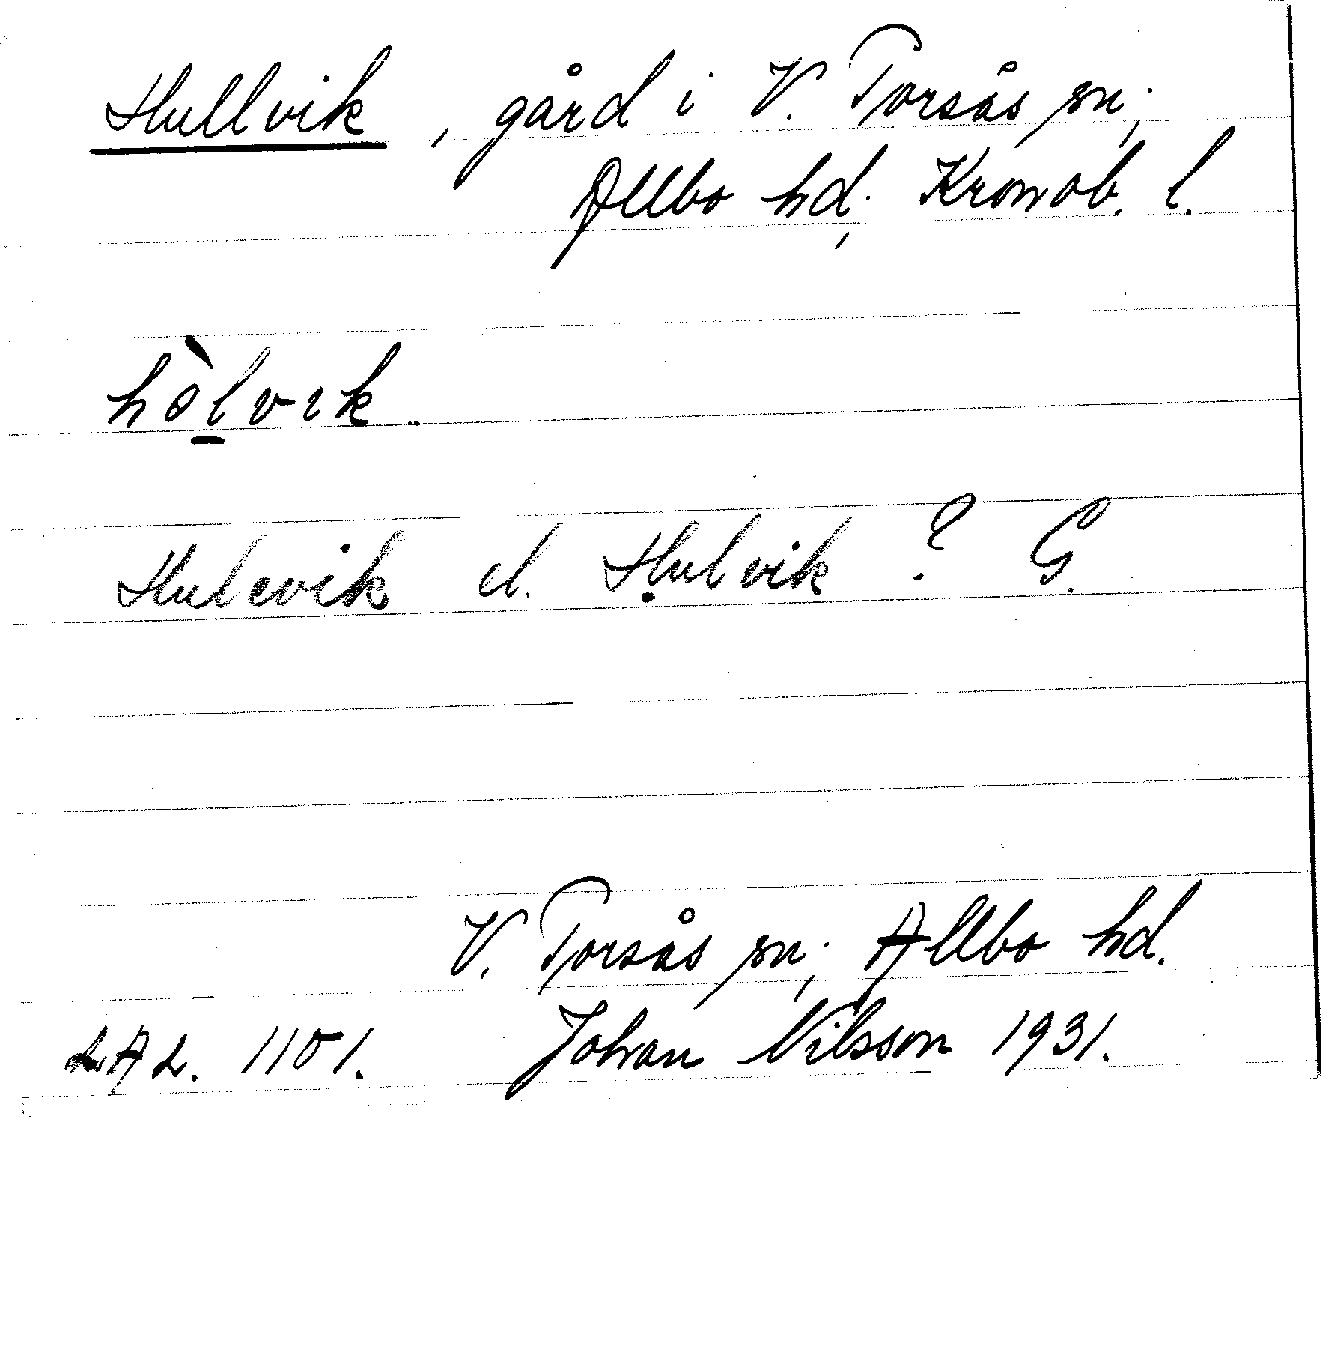 Hullvik, gård i V. Torsås sn;
Allbo hd; Kronob. l.
hòl̠vik.
Hulevik el. Hulvik? G.
V. Torsås sn; Allbo hd.
LAL. 1101. Johan Nilsson 1931.